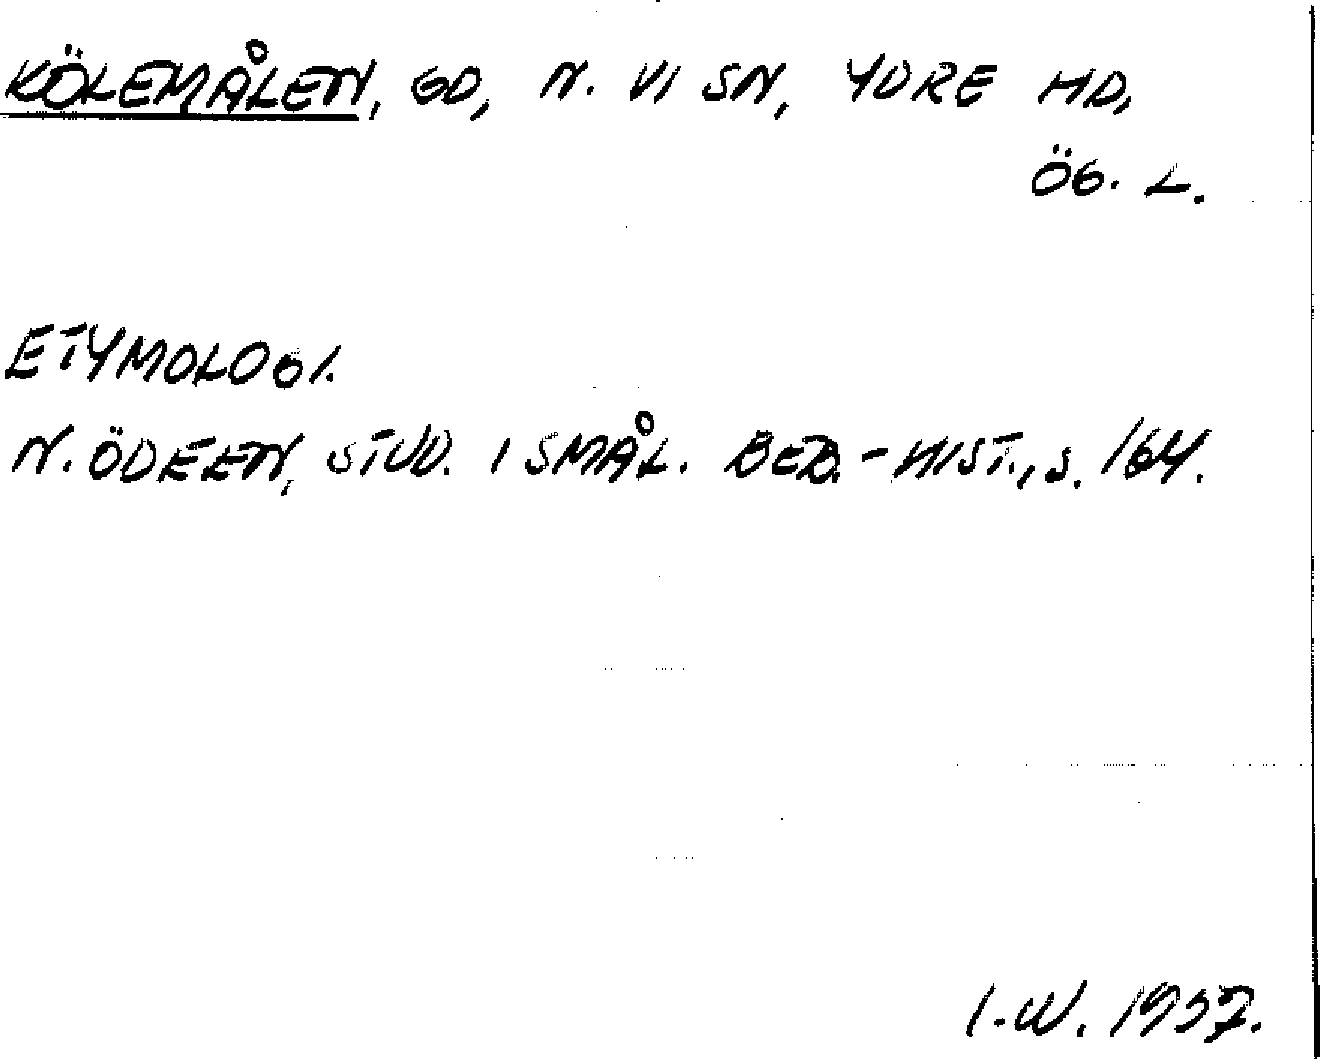 KÖLEMÅLEN, GD, N. VI SN, YDRE HD,
ÖG. L.
ETYMOLOGI.
N. ÖDEEN, STUD. I SMÅL. BEB.-HIST., S. 164.
I.W. 1937.